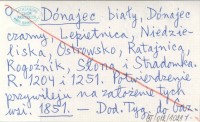 Dónajec biały, Dónajec
czarny, Lepietnica, Niedzie-
liska, Ostrowsko, Ratajnica,
Rogoźnik, Słona i Stradomka
R. 1204 i 1251. Potwierdzenie
przywileju na założenie tych
wsi. 1851. — Dod. Tyg. do Gaz.